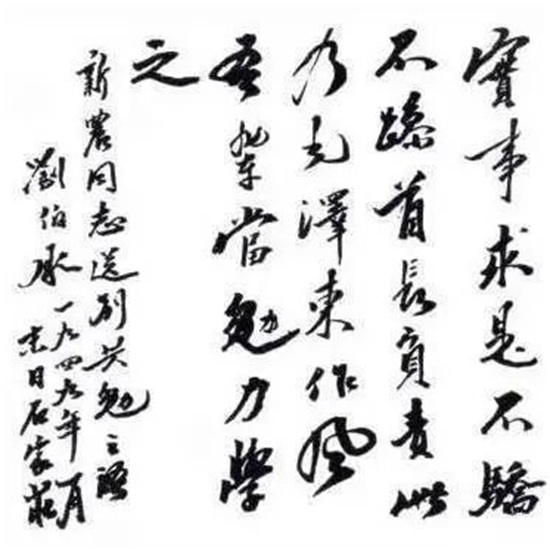 實事求是不驕
不躁首長負責此
乃毛澤東作風
吾輩當勉力學
之
新農同志送別共勉之語
劉伯承一九四九年一月
末日石家莊